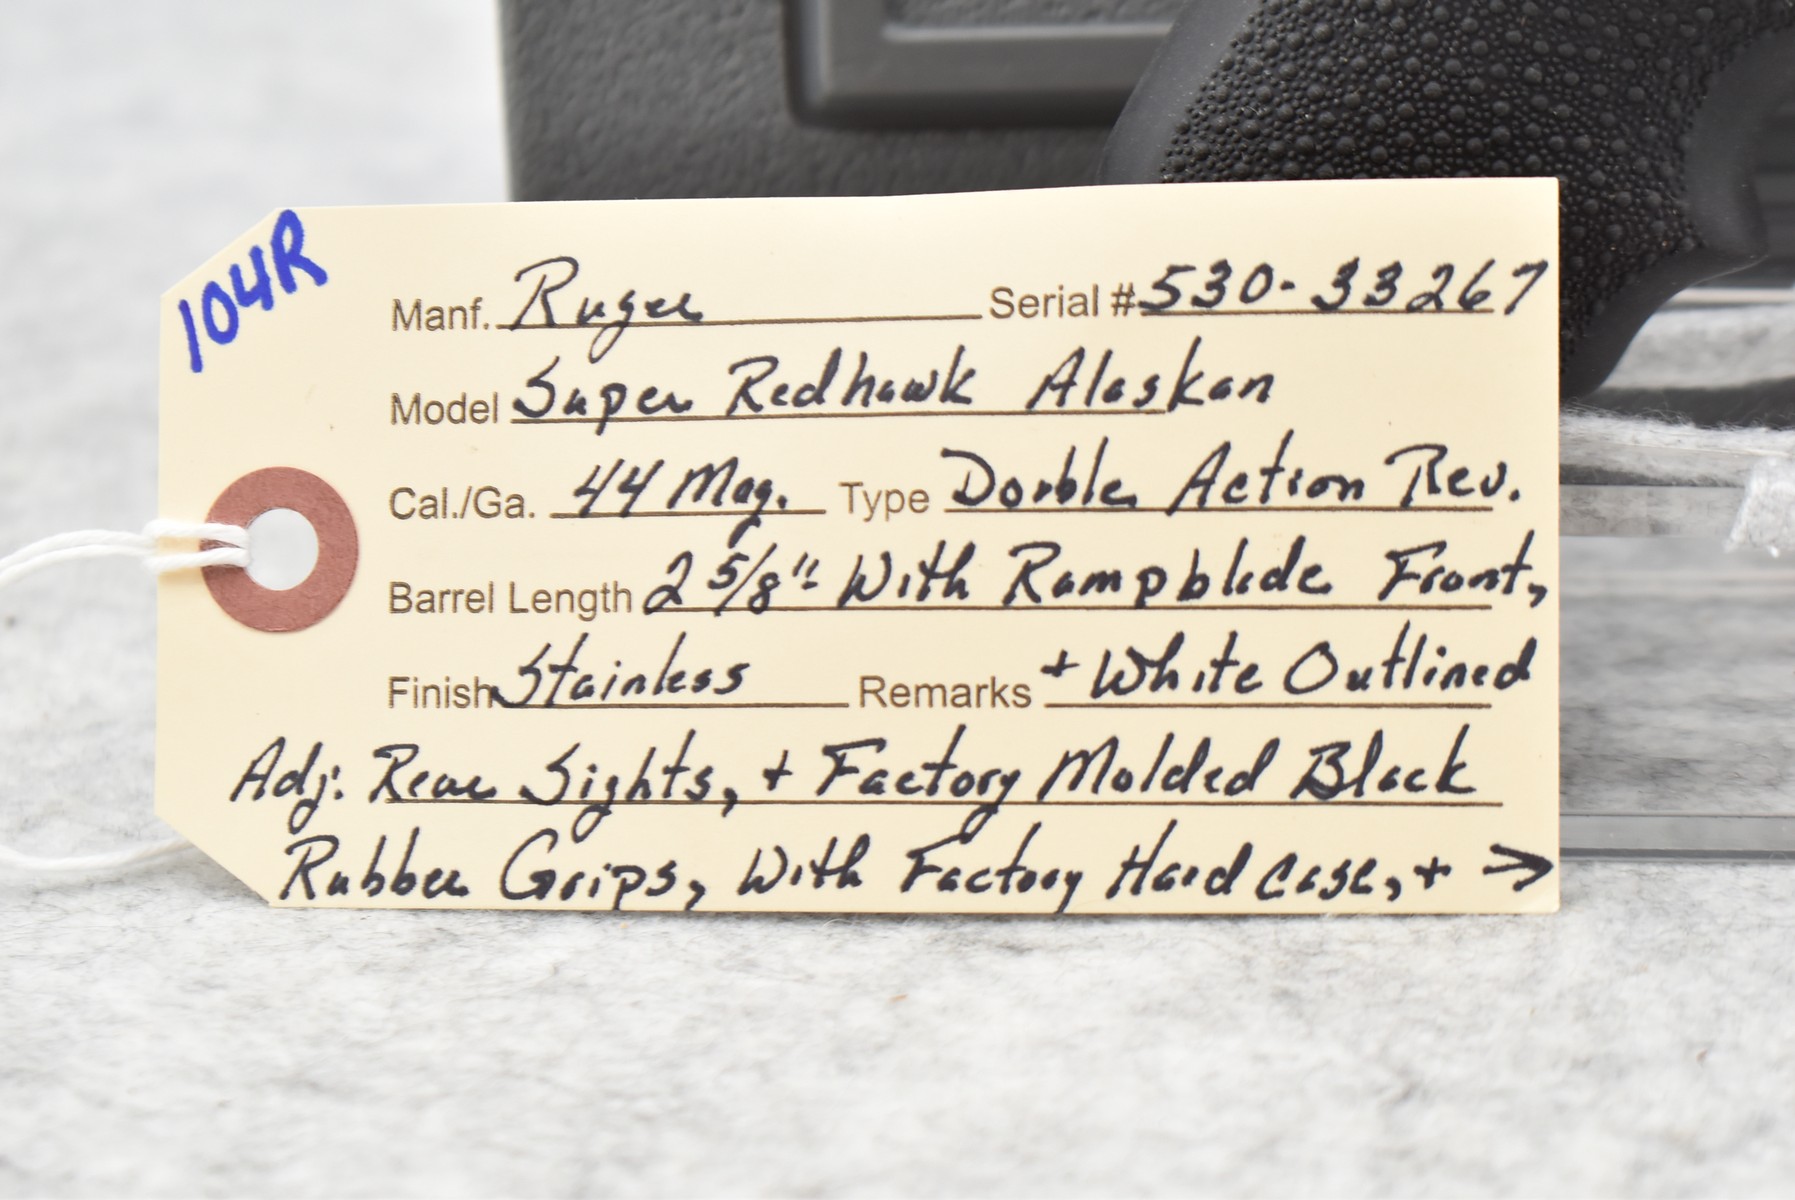 104R
Manf. Ruger Serial # 530-33267
Model Super Redhawk Alaskan
Cal./Ga. 44 Mag. Type Double Action Rev.
Barrel Length 2 5/8" With Rampblade Front,
Finish Stainless Remarks + White Outlined
Adj: Rear Sights, + Factory Molded Black
Rubber Grips, With Factory Hard Case, + →